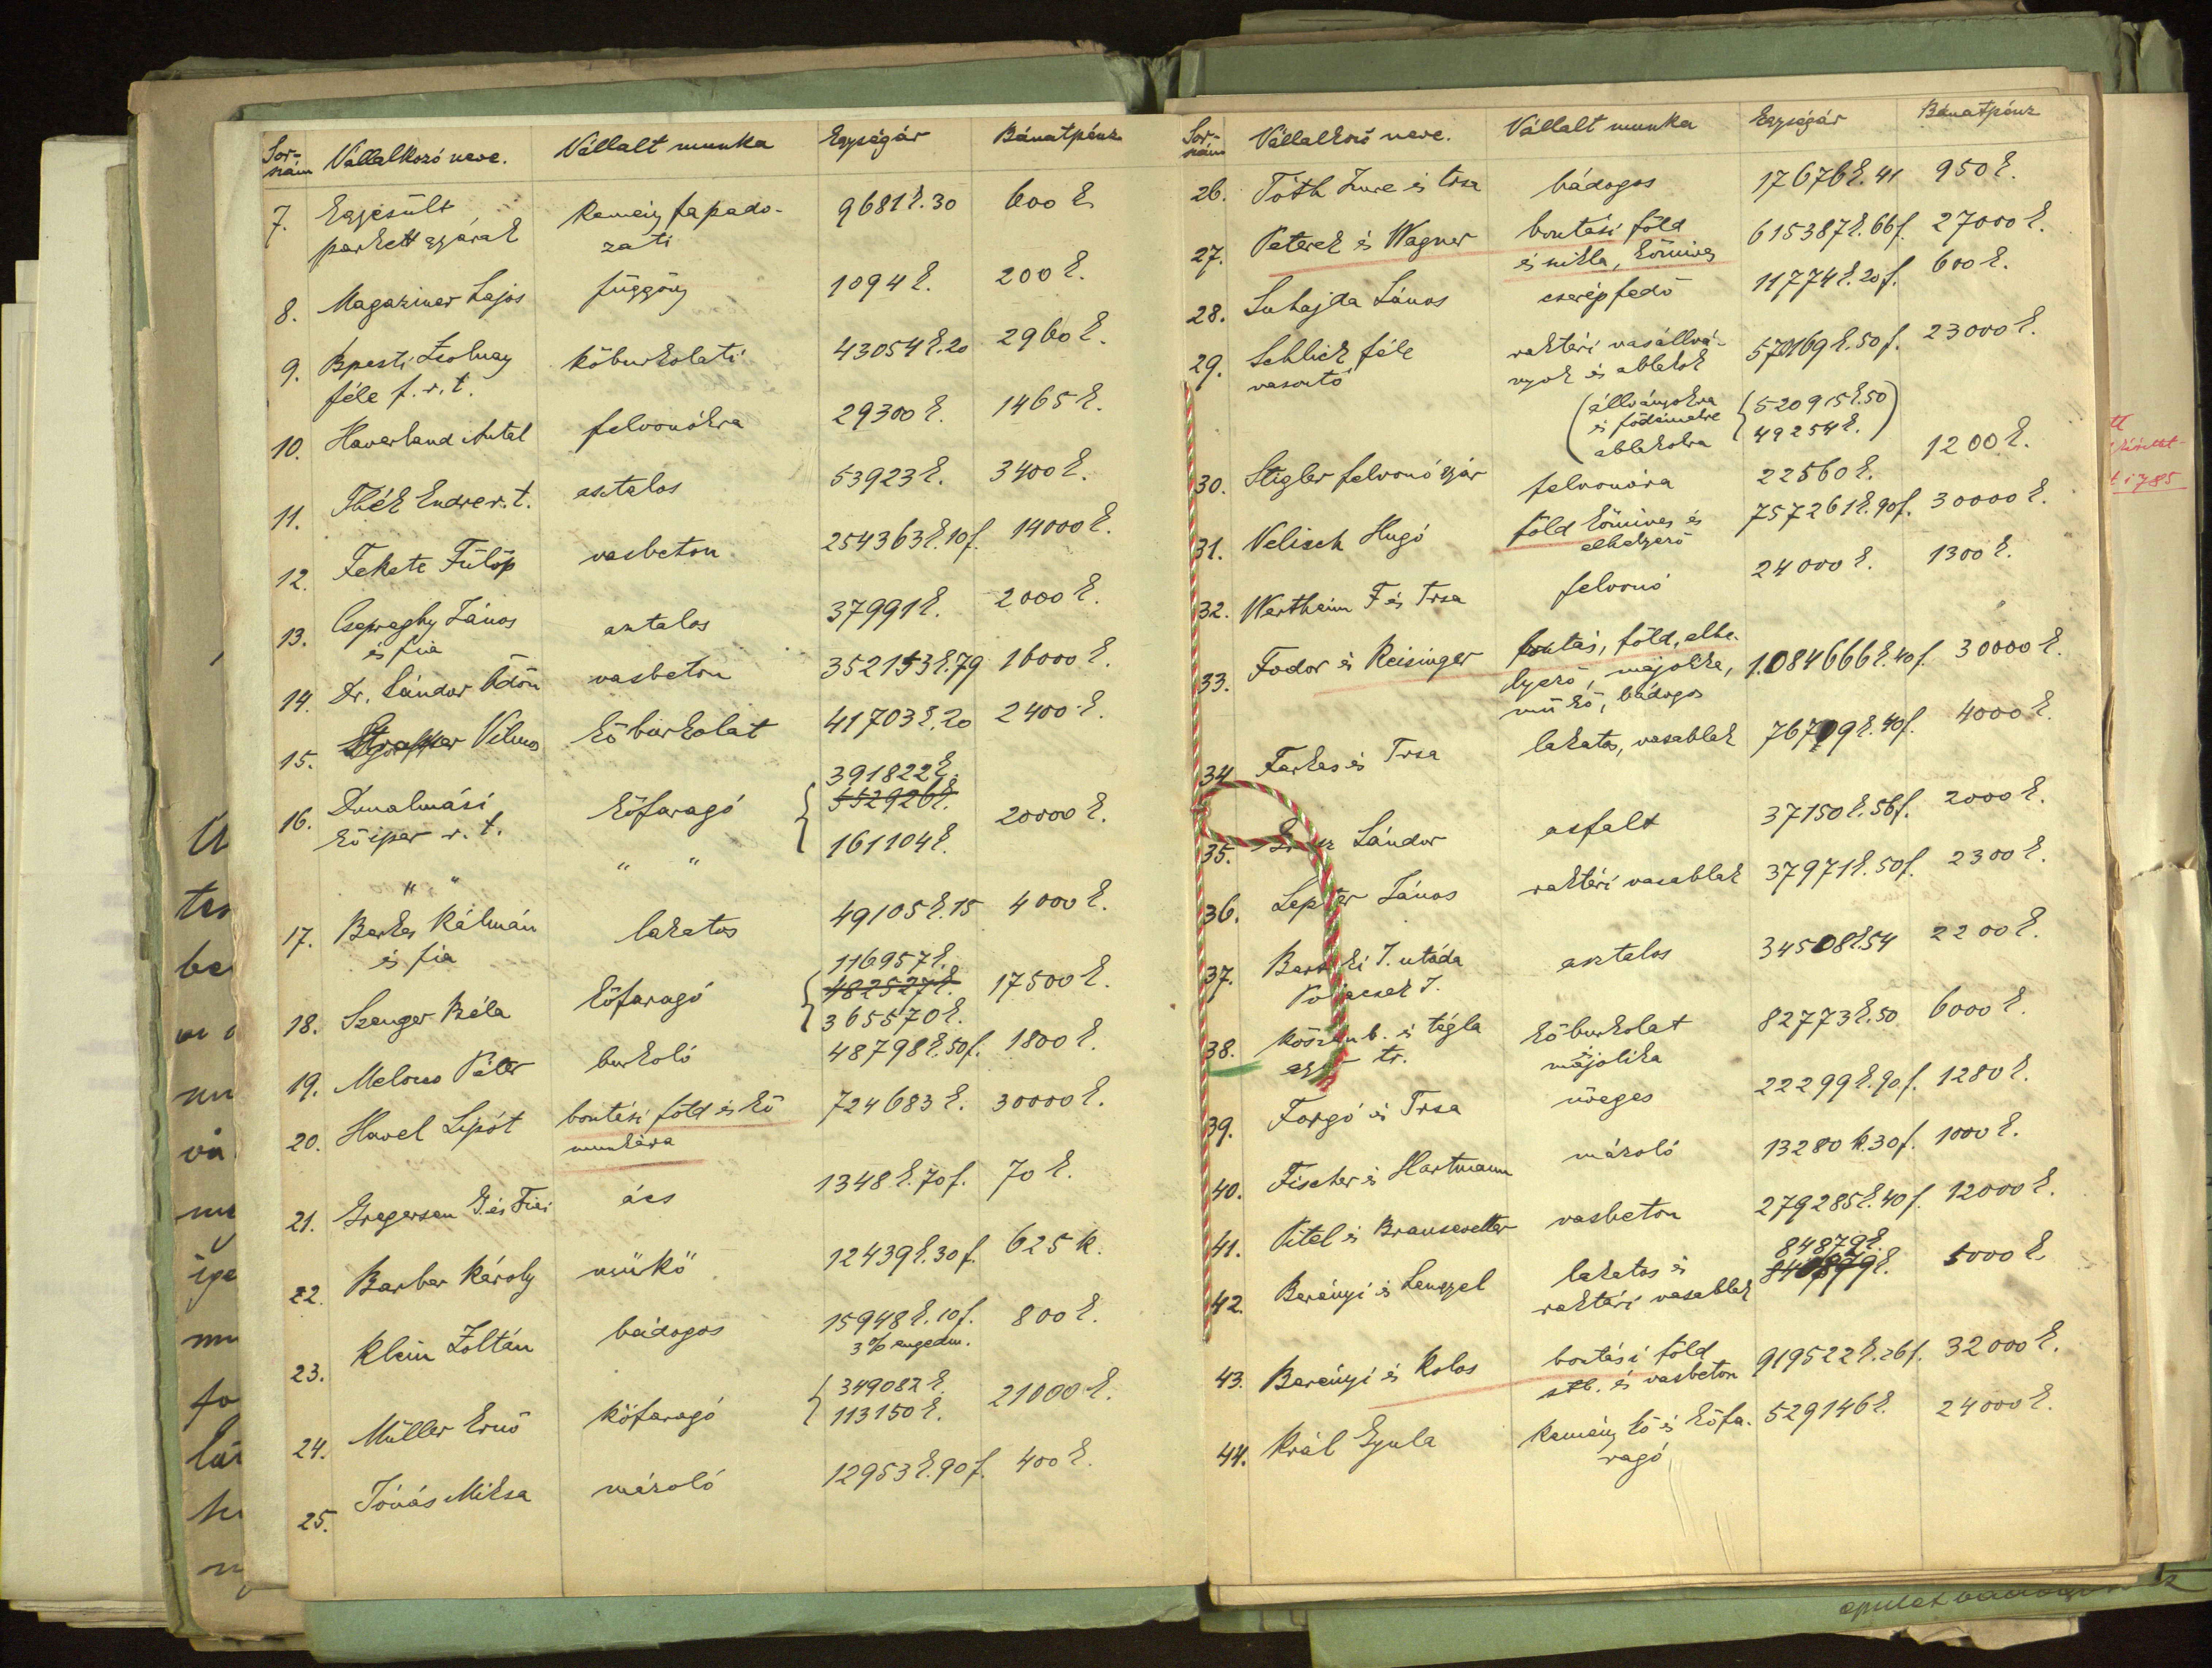 Sor-szám Vállalkozó neve. Vállalt munka Egységár Bánatpénz
7. Egyesült kemény fapado- 9681 k. 30 600 k
parkettgyárak zati
8. Magaziner Lajos függöny 1094 k. 200 k.
9. Bpesti Zsolnay kőburkolati 43054 k. 20 2960 k.
féle f. r. t.
10. Haverland Antal felvonókra 29300 k. 1465 k.
11. Thék Endre r. t. asztalos 53923 k. 3400 k.
12. Fekete Fülöp vasbeton 254363 k. 10 f. 14000 k.
13. Csepreghy János asztalos 37991 k. 2000 k.
és fia
14. Dr. Sándor Ödön vasbeton 352153 k. 79 16000 k.
15. Vilmos kőburkolat 41703 k. 20 2400 k.
391822 k.
16. Dunalmási kőfaragó 552926 k. 20000 k.
kőipar r. t.
161104 k.
" " " "
17. Barta Kálmán lakatos 49105 k. 15 4000 k.
és fia
116957 k.
18. Szenger Béla kőfaragó 482527 k. 17500 k.
365570 k.
19. Melocco Péter burkoló 48798 k. 50 f. 1800 k.
20. Havel Lipót bontási föld és kő 724683 k. 30000 k.
munkára
21. Gregersen G. és Fiai ács 1348 k. 70 f. 70 k.
22. Barber Károly műkő 12439 k. 30 f. 625 k.
23. Klein Zoltán bádogos 15948 k. 10 f. 800 k.
3 % engedm.
24. Müller Ernő kőfaragó 349082 k. 21000 k.
113150 k.
25. Jónás Miksa mázoló 12953 k. 90 f. 400 k.
Sor-szám Vállalkozó neve. Vállalt munka Egységár Bánatpénz
26. Tóth Imre és Trsa bádogos 17676 k. 41 950 k.
27. Paterek és Wagner bontási föld 615387 k. 66 f. 27000 k.
és szikla, kőmives
28. Suhajda János cserépfedő 11774 k. 20 f. 600 k.
29. Schlick féle raktári vasállvá- 570169 k. 50 f. 23000 k.
vasöntő nyok és ablakok
(állványokra {520915 k. 50)
és födémekre
ablakokra 49254 k.)
30. Stigler felvonógyár felvonóra 22560 k. 1200 k.
31. Velisch Hugó föld kőmives és 757261 k. 90 f. 30000 k.
elhelyező
32. Wertheim F és Trsa felvonó 24000 k. 1300 k.
33. Fodor és Reisinger bontás, föld, elhe- 1.084666 k. 40 f. 30000 k.
lyező, majolika,
műkő, bádogos
34. Farkas és Trsa lakatos, vasablak 76709 k. 40 f. 4000 k.
35. Sándor asfalt 37150 k. 56 f. 2000 k.
36. Lepter János raktári vasablak 37971 k. 50 f. 2300 k.
37. J. utóda asztalos 34508 k. 54 2200 k.
J.
38. Kőszénb. és tégla kőburkolat 82773 k. 50 6000 k.
tr. és majolika
39. Forgó és Trsa üveges 22299 k. 90 f. 1280 k.
40. Fischer és Hartmann mázoló 13280 k. 30 f. 1000 k.
41. Pittel és Brausewetter vasbeton 279285 k. 40 f. 12000 k.
84879 k.
42. Berényi és Lengyel lakatos és 5000 k.
raktári vasablak
43. Berényi és Kolos bontási föld 919522 k. 26 f. 32000 k.
stb. és vasbeton
44. Král Gyula kemény kő és kőfa- 529146 k. 24000 k.
ragó